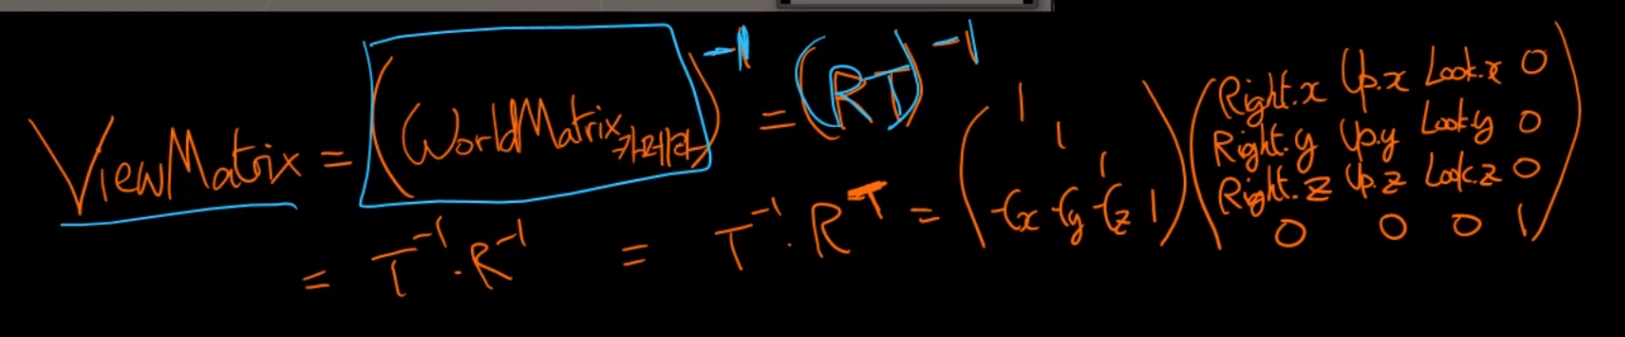 ViewMatrix = (WorldMatrix카메라)⁻¹ = (RT)⁻¹
= T⁻¹ · R⁻¹ = T⁻¹ · Rᵀ =
1
1
1
-Cx -Cy -Cz 1
Right.x Up.x Look.x 0
Right.y Up.y Look.y 0
Right.z Up.z Look.z 0
0 0 0 1